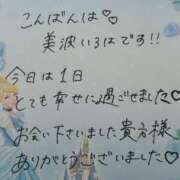 こんばんは♡
美波いろはです!!
今日は1日
とても幸せに過ごせました♡
お会い下さいました貴方様
ありがとうございました♡